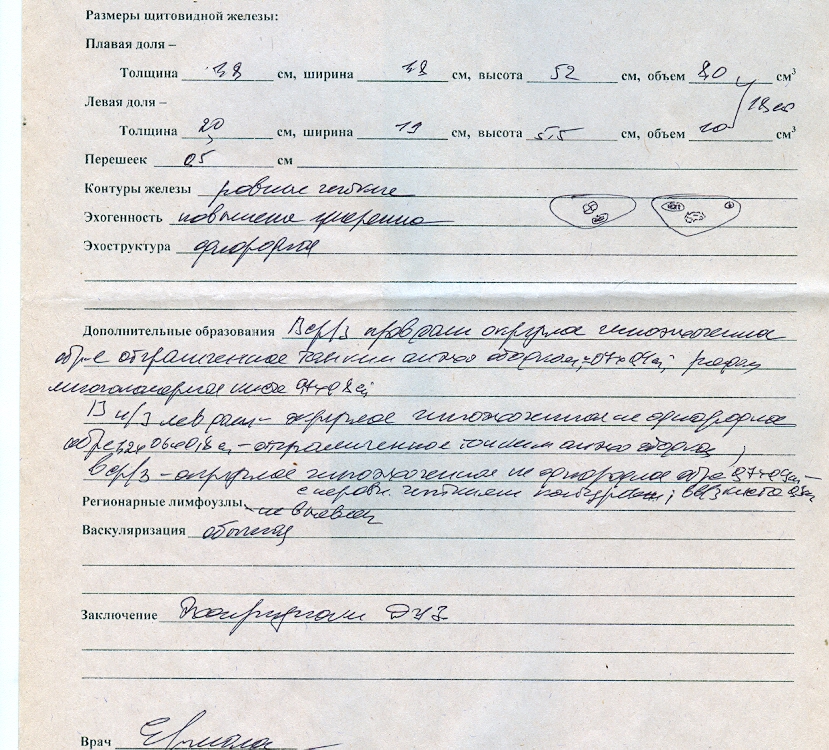 Размеры щитовидной железы:
Плавая доля –
Толщина 1,8 см, ширина 1,8 см, высота 5,2 см, объем 8,0 см³
18 см
Левая доля –
Толщина 2,0 см, ширина 1,9 см, высота 5,5 см, объем 10 см³
Перешеек 0,5 см
Контуры железы ровные четкие
Эхогенность повышена умеренно
Эхоструктура однородная
Дополнительные образования В ср/з прав доли округлое гипоэхогенное
обр-е отграниченное тонким анэхо ободком, 0,7х0,4 см, рядом
многокамерная киста 0,7х0,2 см
В н/з лев доли - округлое гипоэхогенное не однородное
обр-е 1,2х0,6х0,8 см - отграниченное тонким анэхо ободком,
В ср/з - округлое гипоэхогенное не однородное обр-е 0,7х0,4 см -
с неровн. четкими контурами; в в/з киста 0,3 см
Регионарные лимфоузлы - не выявлен
Васкуляризация обычная
Заключение ДУЗ
Врач